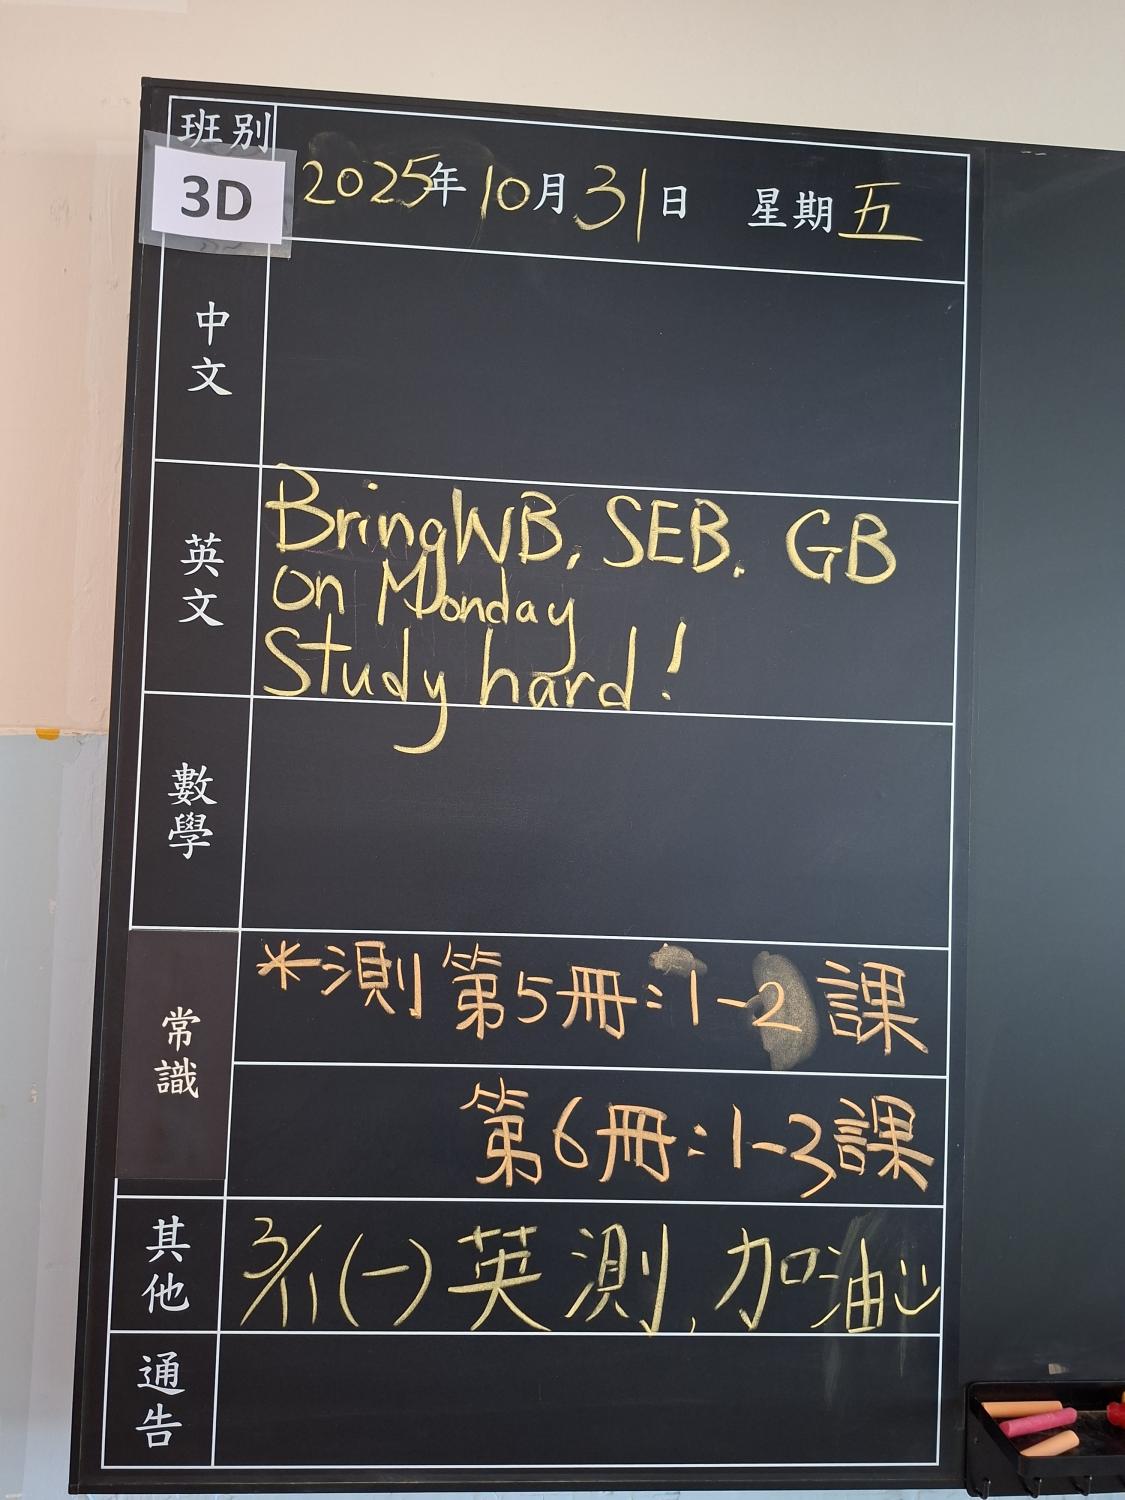 班別
3D
2025年10月31日 星期五
中文
英文
Bring WB, SEB, GB
on Monday
Study hard!
數學
常識
*測 第5冊:1-2課
第6冊:1-3課
其他
3/11(一)英測,加油
通告